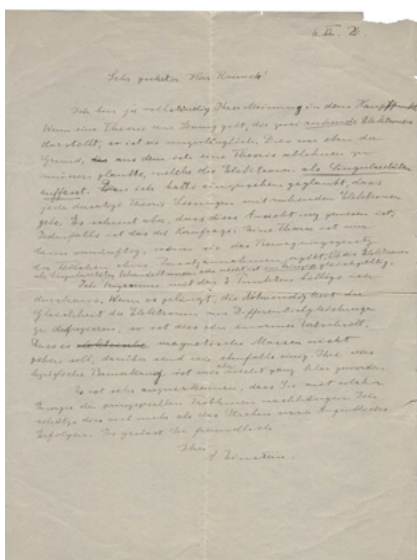 6. XII. 
Sehr geehrter Herr
Ich bin ja vollständig Ihrer Meinung in dem Hauptpunkte
Wenn eine Theorie eine Lösung gibt, die zwei ruhende Elektronen
darstellt, so ist sie unzulänglich. Dies war eben der
Grund, aus dem ich eine Theorie ablehnen zu
müssen glaubte, welche die Elektronen als Singularitäten
auffasst. Denn ich hatte geglaubt, dass
jede derartige Theorie Lösungen mit ruhenden Elektronen
gebe. Es scheint aber, dass diese Ansicht irrig gewesen ist;
Jedenfalls ist das die Kernfrage: Eine Theorie ist nur
dann vernünftig, wenn sie das Bewegungsgesetz
der ohne ergibt. Ob die Elektronen
als behandelt werden oder nicht ist
Ihr Programm mit den 3 billige ich
durchaus. Wenn es gelingt, die Notwendigkeit der
Gleichheit der Elektronen aus Differentialgleichungen
zu so ist dies ein enormer Fortschritt.
Dass es magnetische Massen nicht
geben soll, darüber sind wir ebenfalls einig. Ihre
bezügliche Bemerkung ist mir aber nicht ganz klar geworden.
Es ist sehr anzuerkennen, dass Sie mit solcher
Energie den prinzipiellen Problemen nachhängen. Ich
schätze dies viel mehr als das Streben nach Augenblicks-
Erfolgen. Es grüsst Sie freundlich
Ihr
A. Einstein.